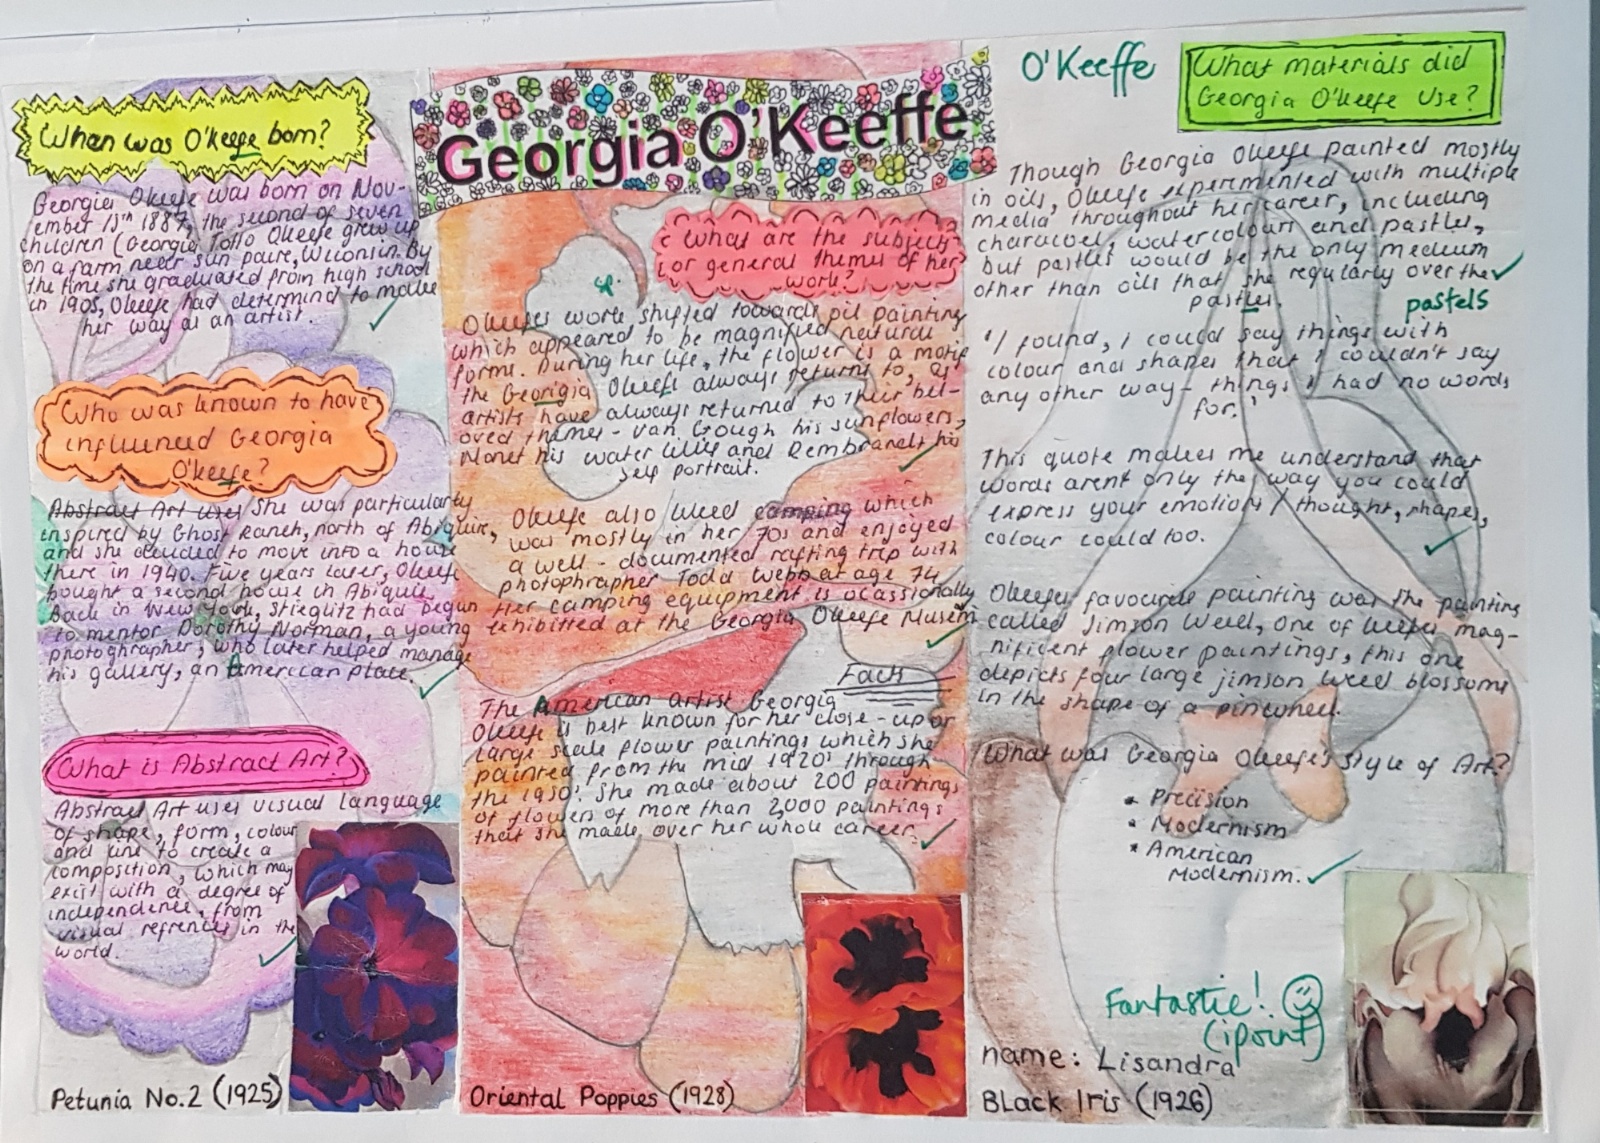 When was O'keefe born?
Georgia Okeefe was born on Nov-
ember 15th 1887, the second of seven
children (Georgia Totto Okeefe grew up
on a farm near sun paire, Wiconsin. By
the time she graduated from high school
in 1905, Okeefe had determind to make
her way as an artist.
Who was known to have
influened Georgia
O'keefe?
Abstract Art uses She was particularty
inspired by Ghost Ranch, north of Abiquire,
and she decided to move into a house
there in 1940. Five years later, Okeefe
bought a second house in Abiquie
Back in New York, Stieglitz had begun
to mentor Dorothy Norman, a young
photoghrapher, who later helped manage
his gallery, an American place.
What is Abstract Art?
Abstract Art uses visual language
of shape, form, colour
and line to create a
composition, which may
exist with a degree of
independence, from
visual refrences in the
world.
Petunia No.2 (1925)
Georgia O'Keeffe
What are the subjects
or general themes of her
work?
sp.
Okeefes work shifted towards oil painting
which appeared to be magnified natural
forms. During her life, the flower is a motif
the Georigia Okeefe always returns to, as
artists have always returned to their bel-
oved themes - van Gough his sunflowers,
Monet his water lillis and Rembrandt his
self portrait.
Okeefe also liked camping which
was mostly in her 70s and enjoyed
a well - documented rafting trip with
photophrapher Todd Webb at age 74
Her camping equipment is ocassionally
exhibited at the Georgia Okeefe Musem
Facts
The American artist Georgia
Okeefe is best known for her close - up or
large scale flower paintings which she
painted from the mid 1920s through
the 1950s. She made about 200 paintings
of flowers of more than 2,000 paintings
that she made over her whole career.
Oriental Poppies (1928)
O'Keeffe
What materials did
Georgia O'keefe Use?
Though Georgia Okeefe painted mostly
in oils, Okeefe experimented with multiple
media throughout her career, including
characoel, watercolours and pastles,
but pastles would be the only medium
other than oils that she regularly over the
pastles.
pastels
"I found, I could say things with
colour and shapes that I couldn't say
any other way - things I had no words
for."
This quote makes me understand that
words arent only the way you could
express your emotions / thought, shapes,
colour could too.
Okeefes favourite painting was the painting
called Jimson Weed, one of keefes mag-
nificent flower paintings, this one
depicts four large jimson weed blossoms
in the shape of a pinwheel.
What was Georgia Okeefe's style of Art?
• Precision
• Modernism
• American
Modernism.
Fantastic!
(1point)
name: Lisandra
BLack Iris (1926)